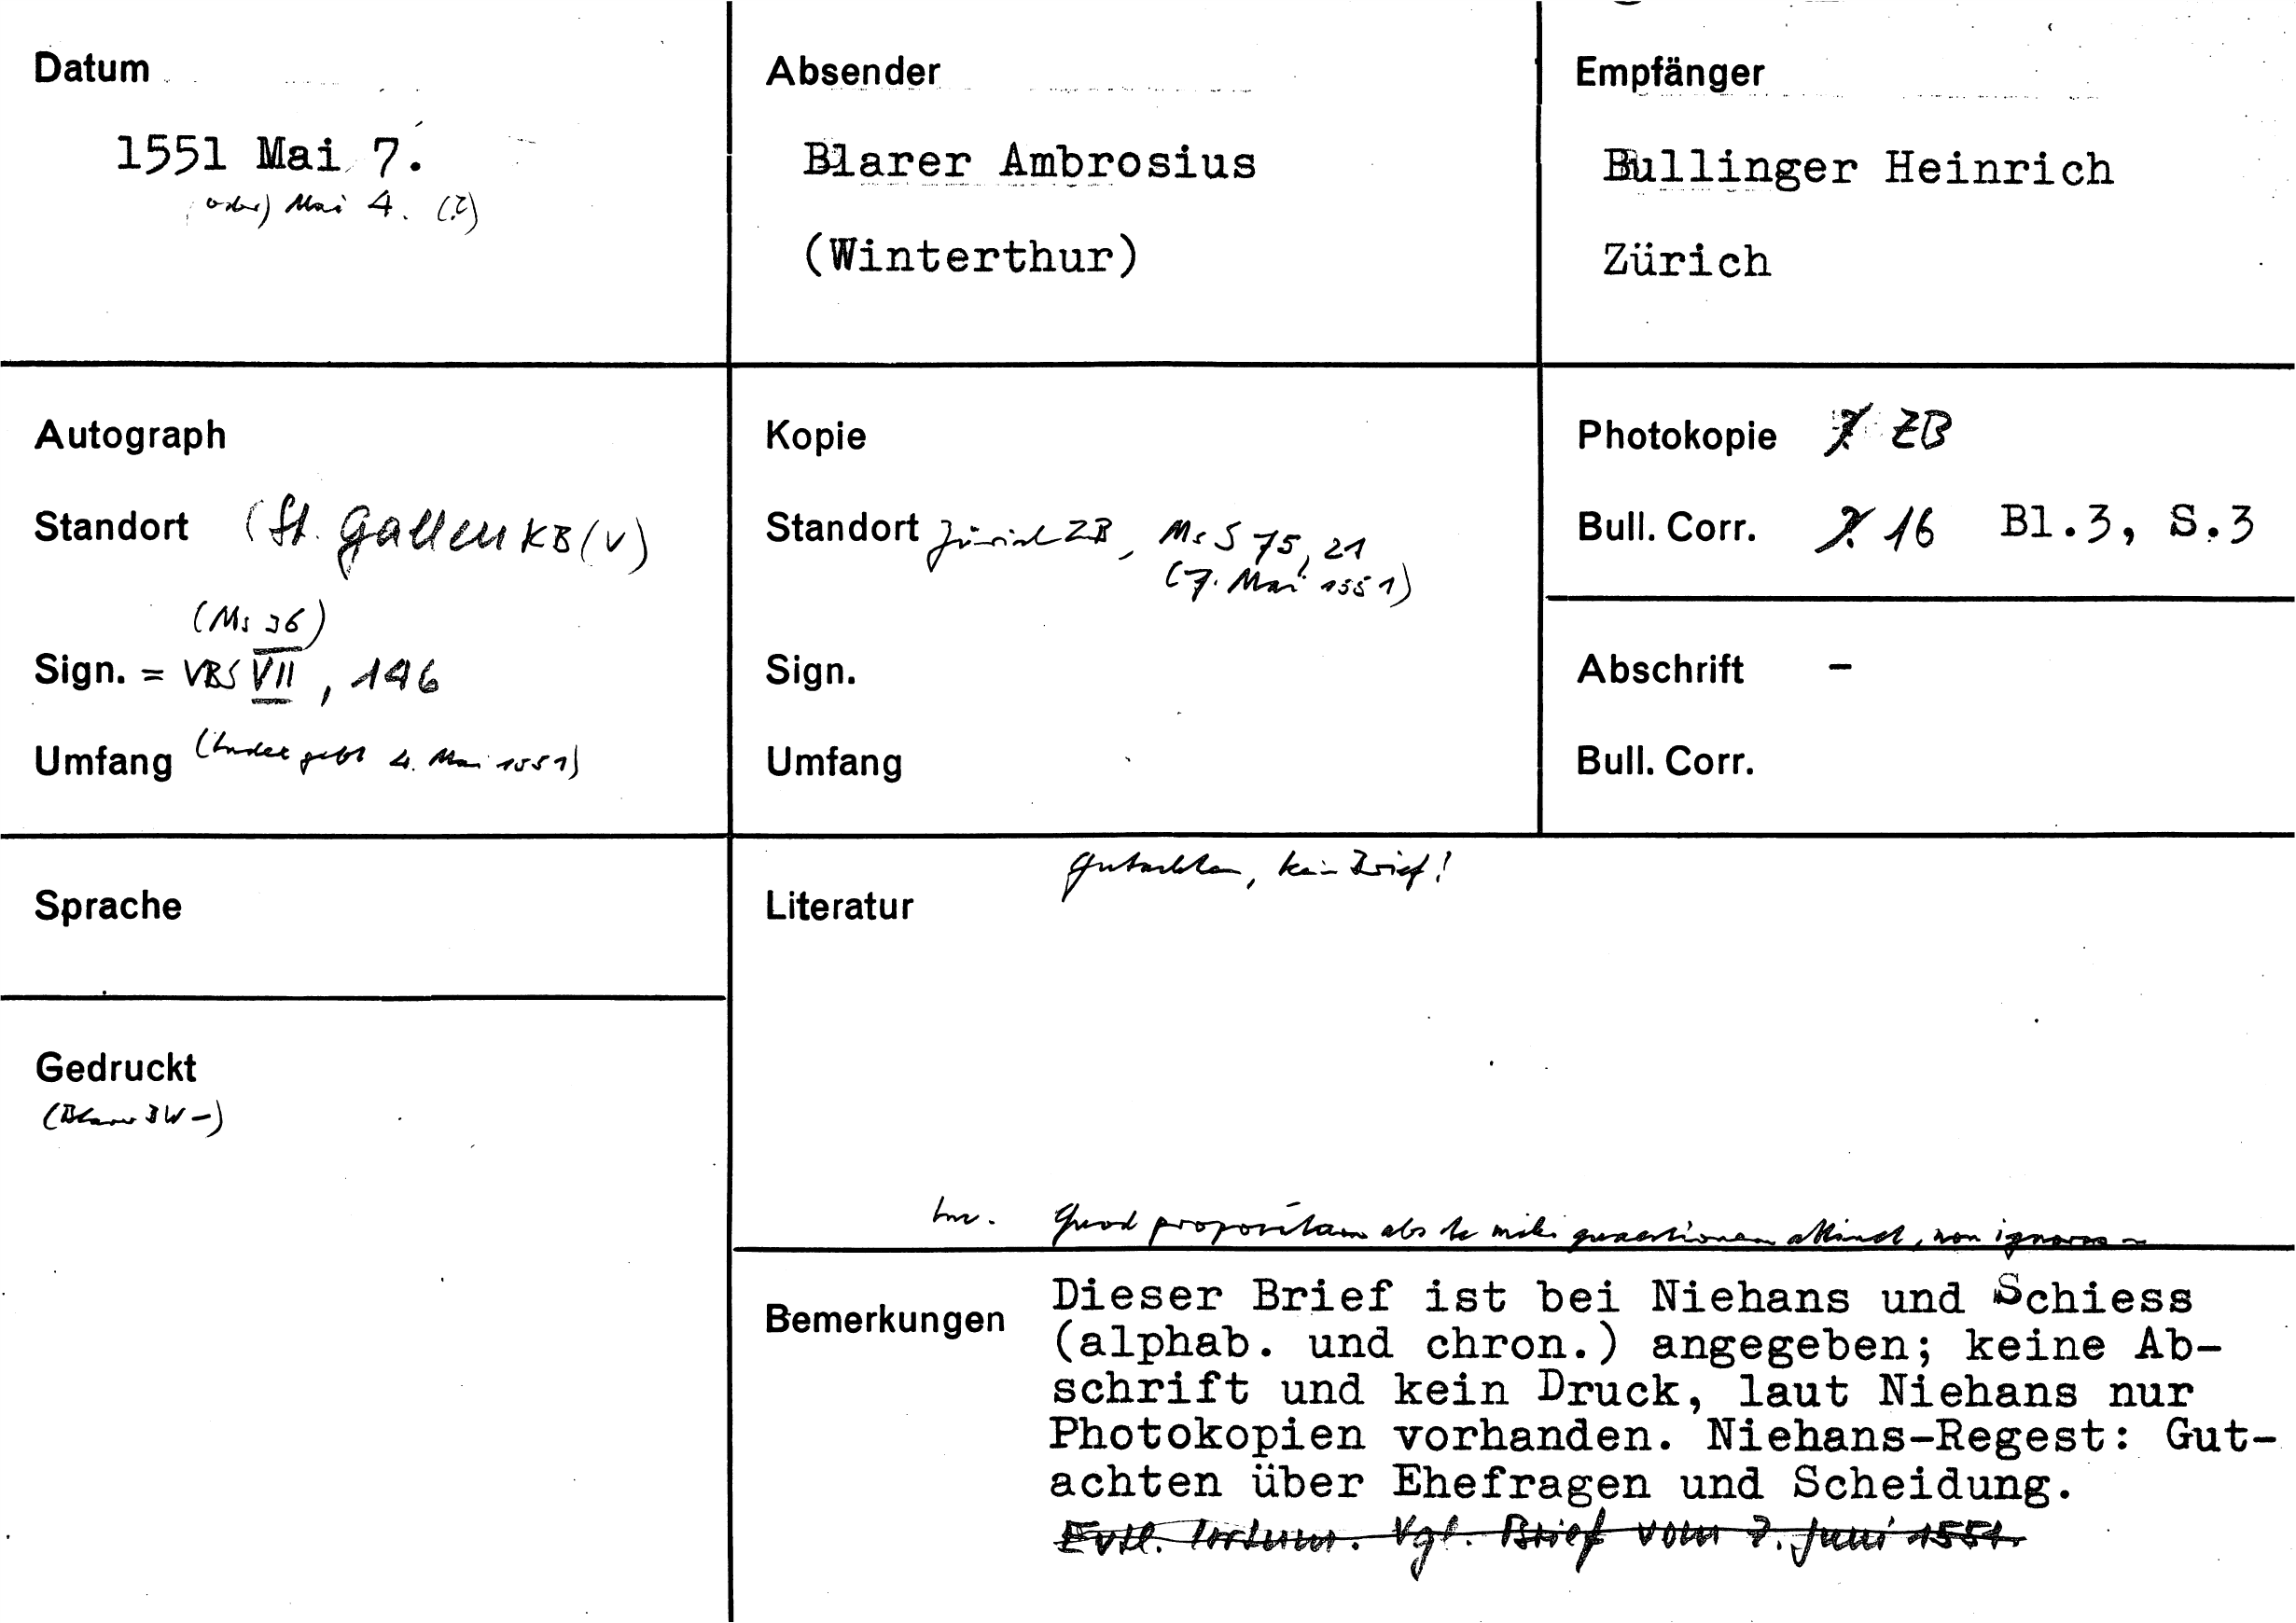 Datum
1551 Mai 7.
oder) Mai 4. (?)
Absender
Blarer Ambrosius
(Winterthur)
Empfänger
Bullinger Heinrich
Zürich
Autograph
Standort (St. Gallen KB (V)
(Ms 36)
Sign. = VBS VII, 146
Umfang (Index gibt 4. Mai 1551)
Kopie
Standort Zürich ZB, Ms S 75, 21
(7. Mai 1551)
Sign.
Umfang
Photokopie ZB
Bull. Corr. 16 Bl.3, S.3
Abschrift –
Bull. Corr.
Sprache
Gedruckt
(Blarer BW –)
Gutachten, kein Brief!
Literatur
Inc. Quod propositam abs te mihi quaestionem attinet, non
Bemerkungen
Dieser Brief ist bei Niehans und Schiess
(alphab. und chron.) angegeben; keine Ab-
schrift und kein Druck, laut Niehans nur
Photokopien vorhanden. Niehans-Regest: Gut-
achten über Ehefragen und Scheidung.
Evtl. Irrtum. Vgl. Brief vom 7. Juni 1551.